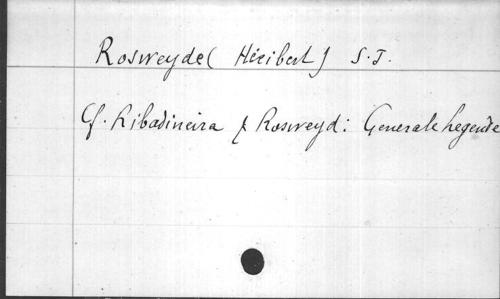 Rosweyde (Héribert) S.J.
Cf. Ribadineira & Rosweyd: Generale Legende